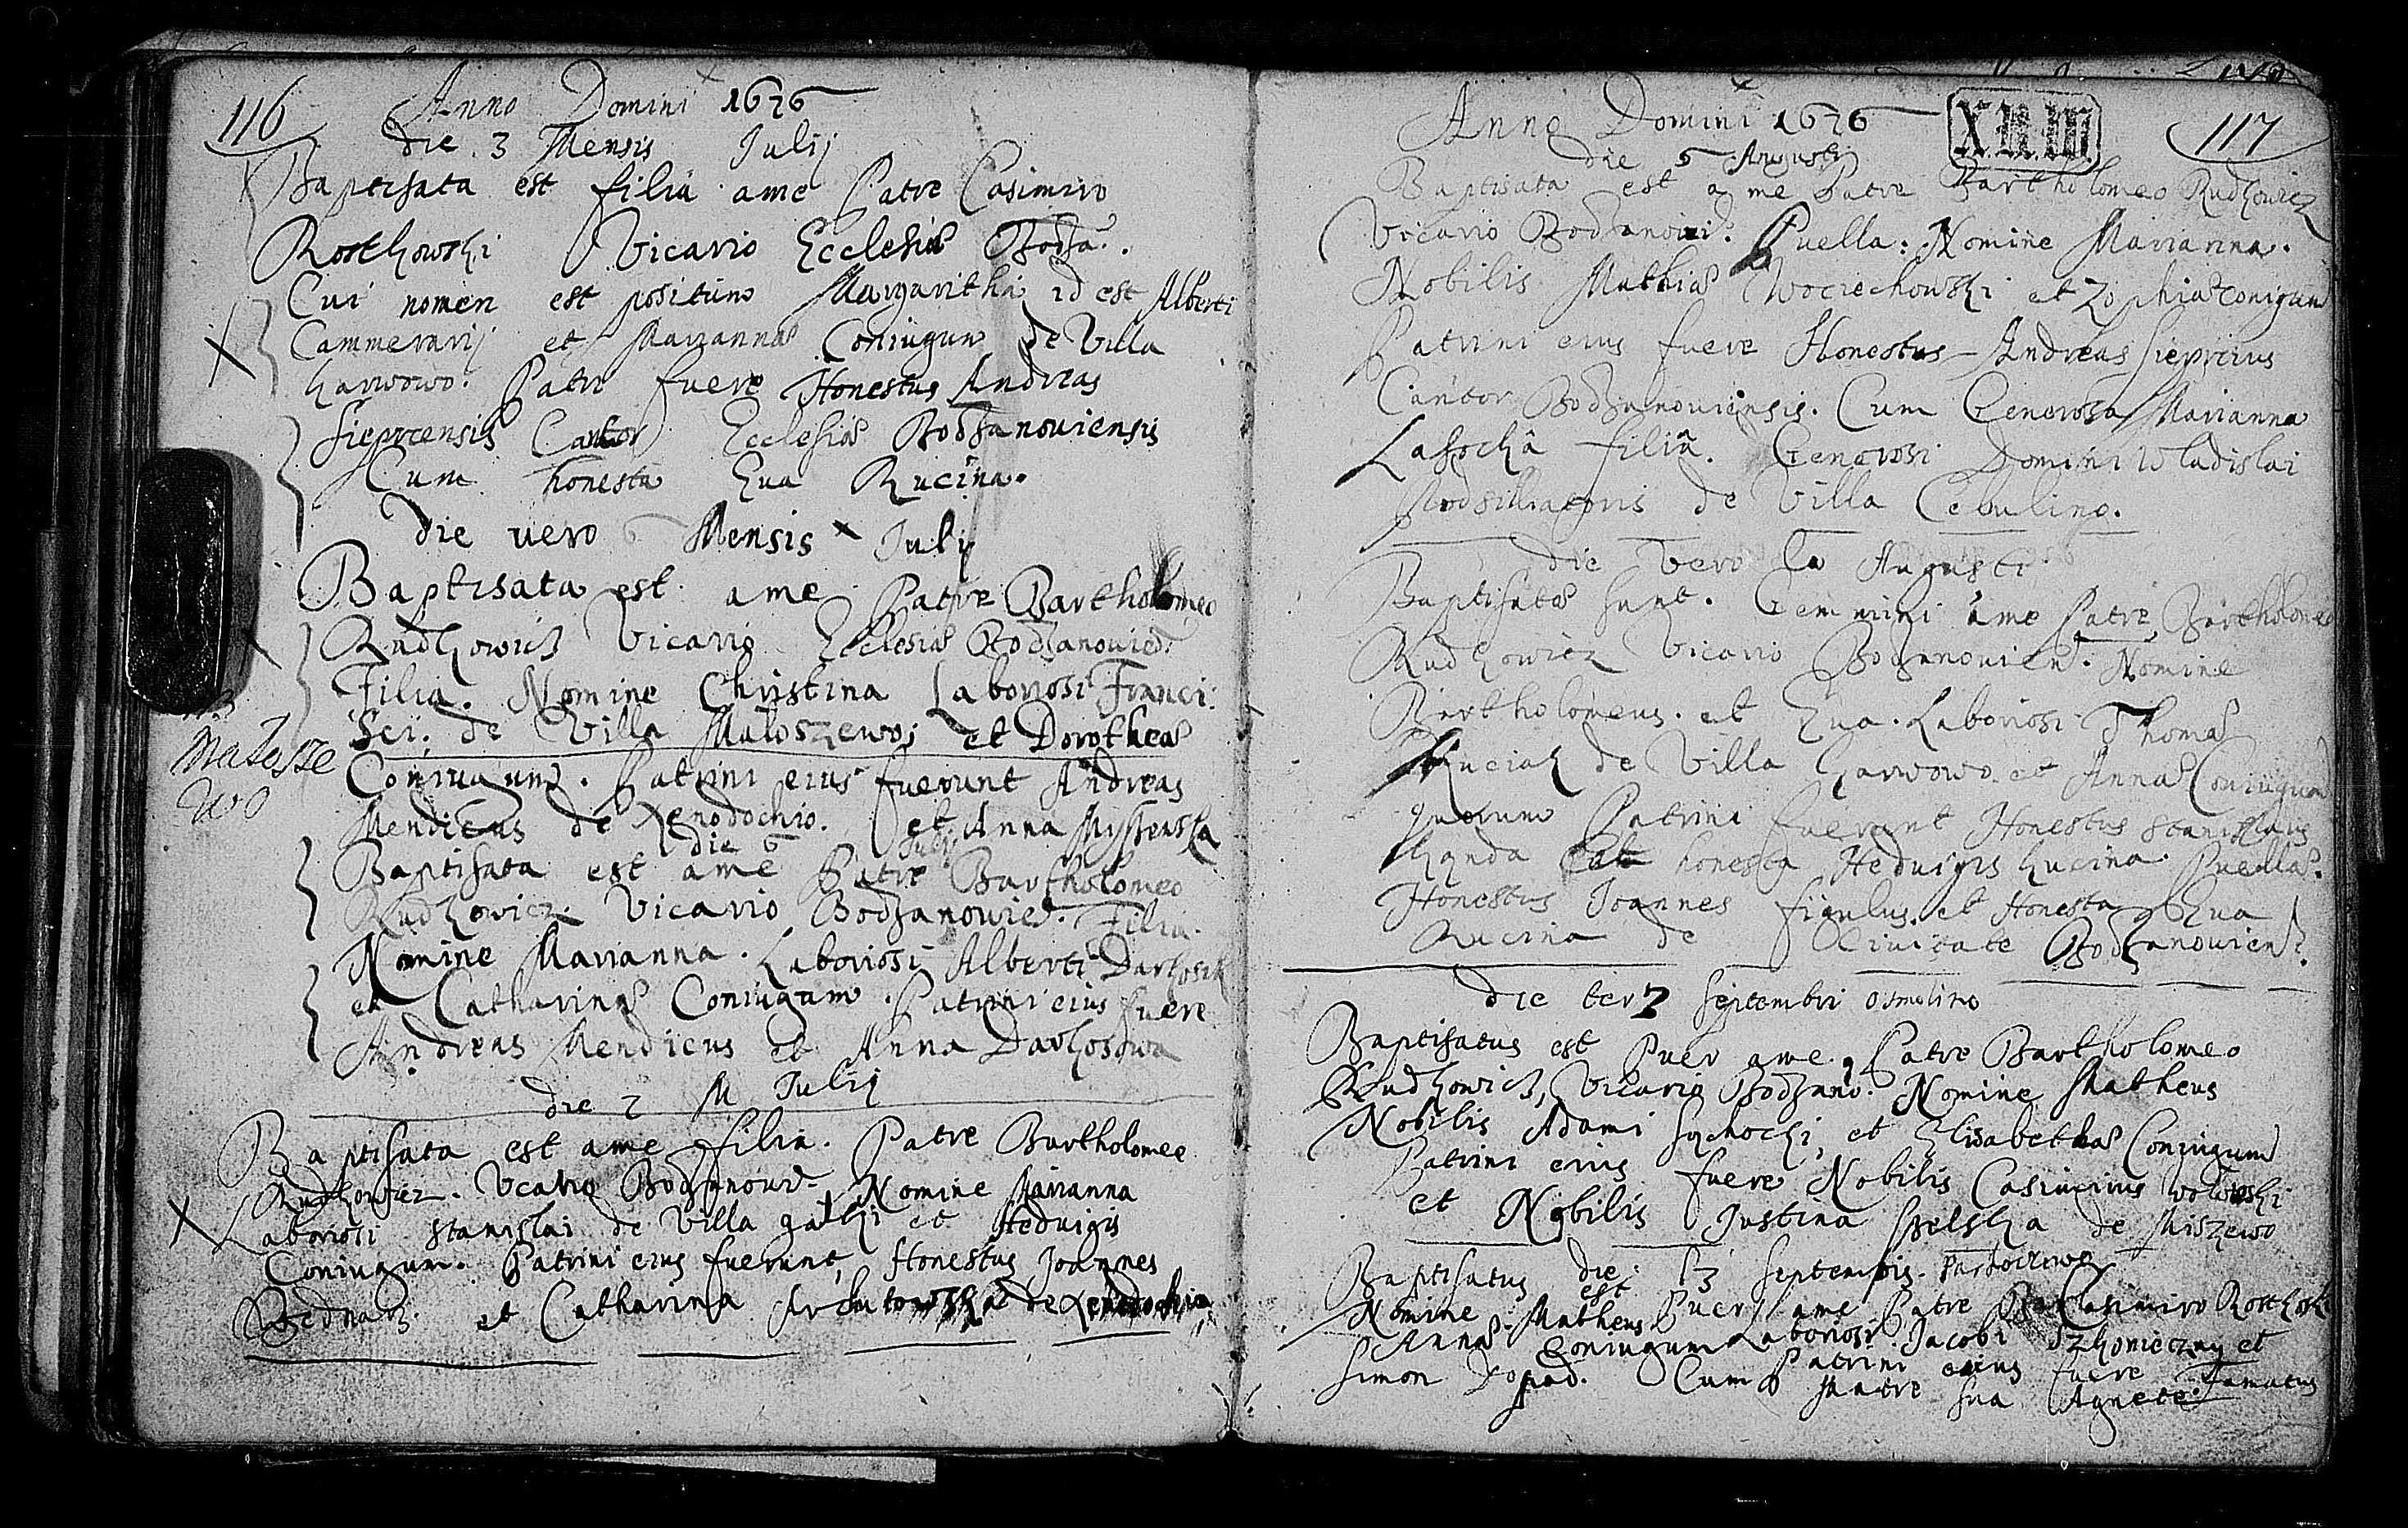 116
Anno Domini 1676
die 3 Mensis Julij
Baptisata est filia a me Patre Casimiro
Rostkowski Vicario Ecclesiæ Bodza.
Cui nomen est positum Margaritha id est Alberti
Cammerarij et Mariannæ Coniugum de Villa
Garwowo. Patri fuere Honestus Andreas
Sieprcensis Cantor Ecclesiæ Bodzanoviensis
Cum honesta Eua Rucina.
die uero 6 Mensis Julij
Baptisata est a me Patre Bartholomeo
Rudkowicz Vicario Ecclesiæ Bodzanovien.
Filia. Nomine Christina Laboriosi Franci:
sci: de Villa Małoszewo; et Dorotheæ
Coniugum. Patrini eius fuerunt Andreas
Mendicus de Xenodochio. et Anna
Małosze
wo
die 6 Julij
Baptisata est a me Patre Bartholomeo
Rudkowicz Vicario Bodzanovien. Filia.
Nomine Marianna. Laboriosi Alberti
et Catharinæ Coniugum. Patrini eius fuere
Andreas Mendicus et Anna Darkosowa
die 2 M Julij
Baptisata est a me filia. Patre Bartholomeo
Rudkowicz. Vcario Bodzanovi. Nomine Marianna
Laboriosi Stanislai de Villa et Heduigis
Coniugum. Patrini eius fuerunt, Honestus Joannes
Bednarz. et Catharina de Xenodochio
117
Anno Domini 1676
die 5 Augusti
Baptisata est a me Patre Bartholomeo Rudkowicz
Vicario Bodzanovien. Puella: Nomine Marianna.
Nobilis Mathiæ Wociechowski et Zophiæ Coniugum
Patrini eius fuere Honestus Andreas Sieprcius
Cantor Bodzanouiensis. Cum Generosa Marianna
Lasocka filia. Generosi Domini Wladislai
de Villa Cebulino.
die vero Augusti
Baptisatæ sunt. Gemmini a me Patre Bartholomeo
Rudkowicz Vicario Bodzanovien. Nomine
Bartholomeus. et Eua. Laboriosi Thomæ
de Villa Garwowo. et Annæ Coniugum
quorum Patrini fuerunt Honestus Stanislaus
et honesta Heduigis Kucina. Puellæ.
Honestus Joannes figulus. et Honesta Eua
Rucina de Ciuitate Bodzanovien.
die Septembri Osmolino
Baptisatus est Puer a me, Patre Bartholomeo
Rudkowicz, Vicario Bodzano. Nomine Matheus
Nobilis Adami Sochocki, et Elisabethæ Coniugum
Patrini eius fuere Nobilis Casimirus
et Nobilis Justina de Miszewo
die 13 Septembris.
Baptisatus est Puer a me Patre Casimiro Rostkoski
Nomine Matheus Laboriosi Jacobi et
Annæ Coniugum Patrini eius fuere Famatus
Simon Cum Matre sua Agnete.